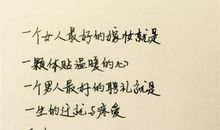 一个女人最好的嫁妆就是
一颗体贴温暖的心
一个男人最好的聘礼就是
一生的迁就与疼爱